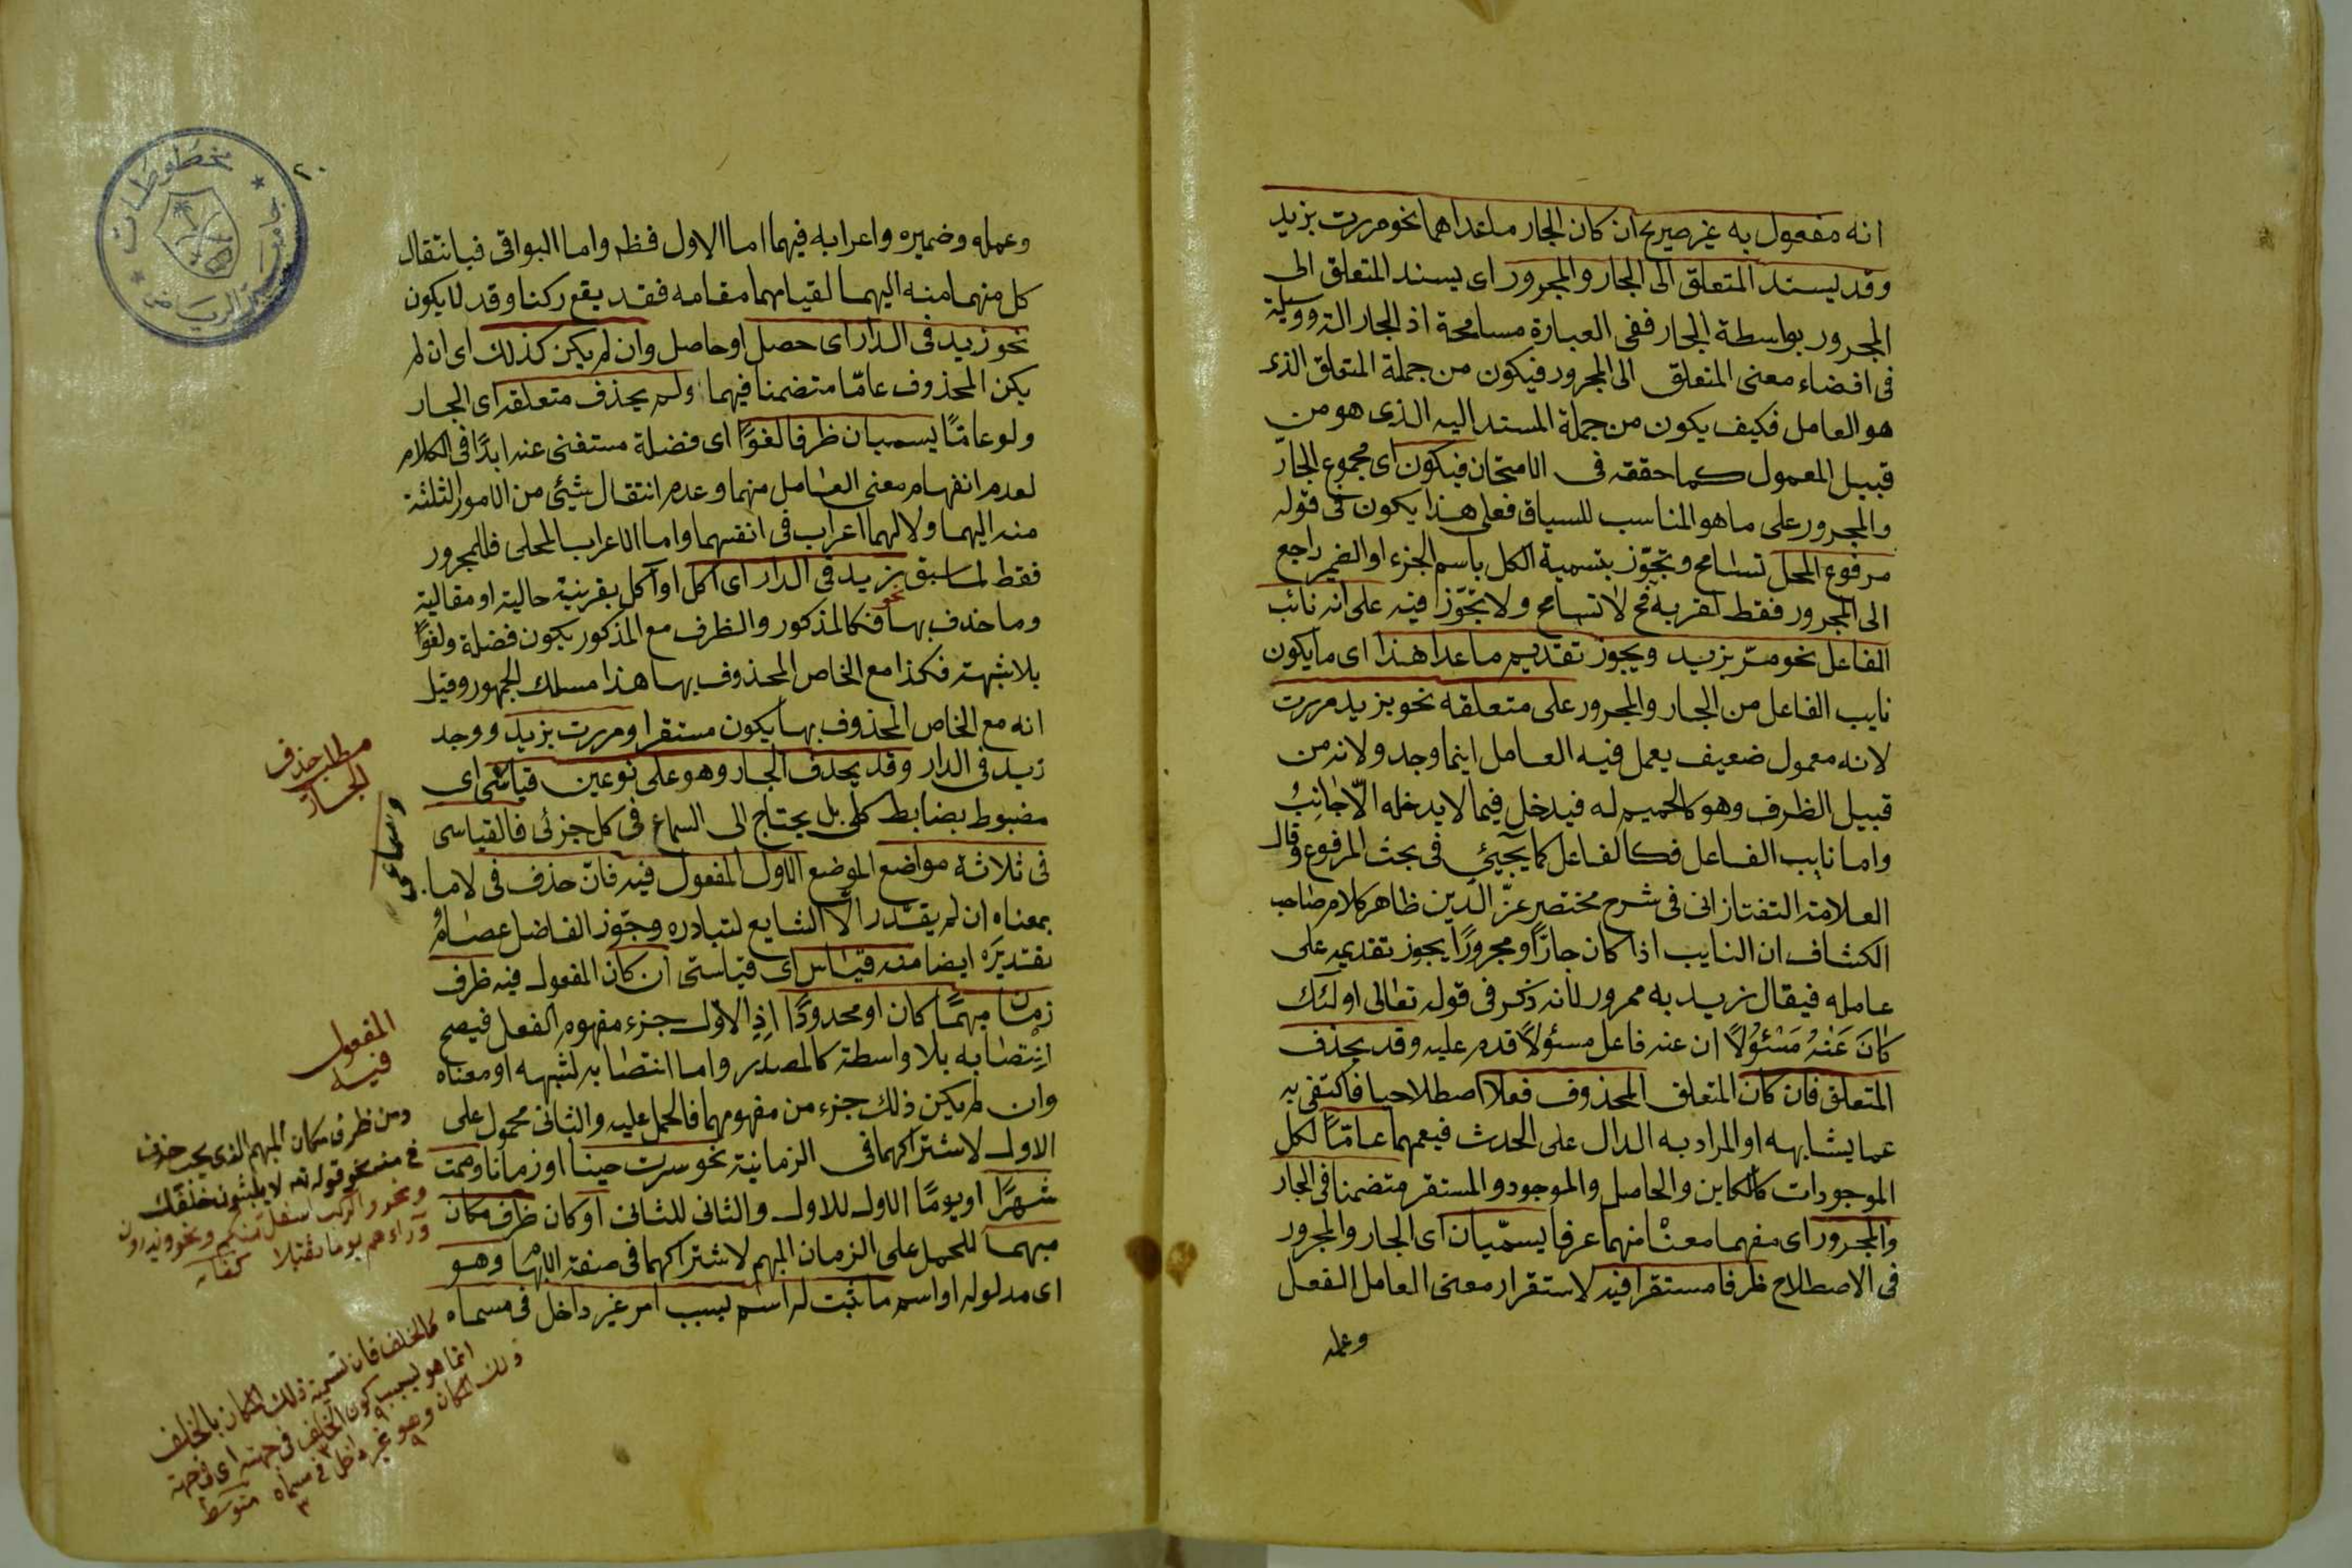 انه مفعول به غير صريح ان كان الجار ماعداهما نحو مررت بزيد
وقد يسند المتعلق الى الجار والمجرور اى يسند المتعلق الى
المجرور بواسطة الجار ففى العبارة مسامحة اذ الجار الة ووسيلة
فى افضاء معنى المتعلق الى المجرور فيكون من جملة المتعلق الذى
هو العامل فكيف يكون من جملة المسند اليه الذى هو من
قبيل المعمول كما حققه فى الامتحان فيكون اى مجموع الجارّ
والمجرور على ما هو المناسب للسياق فعلى هذا يكون فى قوله
مرفوع المحل تسامح وتجوّز بتسمية الكل باسم الجزء او الضمير راجع
الى المجرور فقط لقربه فح لا تسامح ولا تجوّز فيه على انه نائب
الفاعل نحو مرّ بزيد ويجوز تقديم ماعدا هذا اى ما يكون
نايب الفاعل من الجار والمجرور على متعلقه نحو بزيد مررت
لانه معمول ضعيف يعمل فيه العامل اينما وجد ولانه من
قبيل الظرف وهو كالحميم له فيدخل فيما لا يدخله الّاجانبُ
واما نايب الفاعل فكالفاعل كما يجيئ فى بحث المرفوع وقال
العلامة التفتازانى فى شرح مختصر عزّ الدّين ظاهر كلام صاحب
الكشاف ان النايب اذا كان جارّا ومجرورًا يجوز تقديمه على
عامله فيقال زيد به ممرور لانه ذكر فى قوله تعالى اولئك
كَانَ عَنْهُ مَسْئُولًا ان عنه فاعل مسئولًا قدم عليه وقد يحذف
المتعلق فان كان المتعلق المحذوف فعلا اصطلاحيا فاكتفى به
عما يشابهه او المراد به الدال على الحدث فيعمهما عامّا لكل
الموجودات كالكاين والحاصل والموجود والمستقر متضمنا فى الجار
والمجرور اى مفهما معنا منهما عرفا يسمّيان اى الجار والمجرور
فى الاصطلاح ظرفا مستقرا فيه لاستقرار معنى العامل الفعل
وعمله
٢٠
مخطوطات
جامعة الرياض
وعمله وضميره واعرابه فيهما اما الاول فظم واما البواقى فبانتقال
كل منهما منه اليهما لقيامهما مقامه فقد يقع ركنا وقد لا يكون
نحو زيد فى الدار اى حصل او حاصل وان لم يكن كذلك اى ان لم
يكن المحذوف عامّا متضمنا فيهما ولم يحذف متعلقه اى الجار
ولو عامّا يسميان ظرفا لغوًا اى فضلة مستغنى عنه ابدًا فى الكلام
لعدم انفهام معنى العامل منهما وعدم انتقال شيئ من الامور الثلثة
منه اليهما ولا لهما اعراب فى انفسهما واما الاعراب المحلى فللمجرور
فقط لما سبق بزيد فى الدار اى اكل او آكل بقرينة حالية او مقالية
نحو
وما حذف بها فكالمذكور والظرف مع المذكور يكون فضلة ولغوًا
بلا شبهة فكذا مع الخاص المحذوف بها هذا مسلك الجمهور وقيل
انه مع الخاص المحذوف بها يكون مستقرا ومررت بزيد ووجد
زيد فى الدار وقد يحذف الجار وهو على نوعين قياسى اى
مضبوط بضابط كلى بل يحتاج الى السماع فى كل جزئى فالقياسى
فى ثلاثة مواضع الموضع الاول المفعول فيه فانّ حذف فى لا ما
بمعناه ان لم يقتدر الّا الشايع لتبادره وجوّز الفاضل عصامُ
تقديرَه ايضا منه قياس اى قياسىّ ان كان المفعول فيه ظرف
زمان مبهمًا كان او محدودًا اذِ الاول جزء مفهوم الفعل فيصح
انتصابه بلا واسطة كالمصدر واما انتصابه لشبهه او معناه
وان لم يكن ذلك جزء من مفهومهما فالحمل عليه والثانى محمول على
الاول لاشتراكهما فى الزمانية نحو سرت حينا او زمانا وصمت
شهرًا او يومًا الاول للاول والثانى للثانى او كان ظرف مكان
مبهما للحمل على الزمان المبهم لاشتراكهما فى صفة الابهام وهو
اى مدلوله او اسم ما ثبت له اسم بسبب امر غير داخل فى مسماه
مطلب حذف
الجار
وسماعى
المفعول
فيه
ومن ظرف مكان المبهم الذى يجب حذف
فى منه نحو قوله تع لا يلبثون خلفك
ونحو والركب اسفل منكم ونحو ويذرون
وراءهم يوما ثقيلا
كالخلف فان تسمية ذلك المكان بالخلف
انما هو بسبب كون الخلف فى جهته اى فى جهة
ذلك المكان وهو غير داخل فى مسماه متوسط